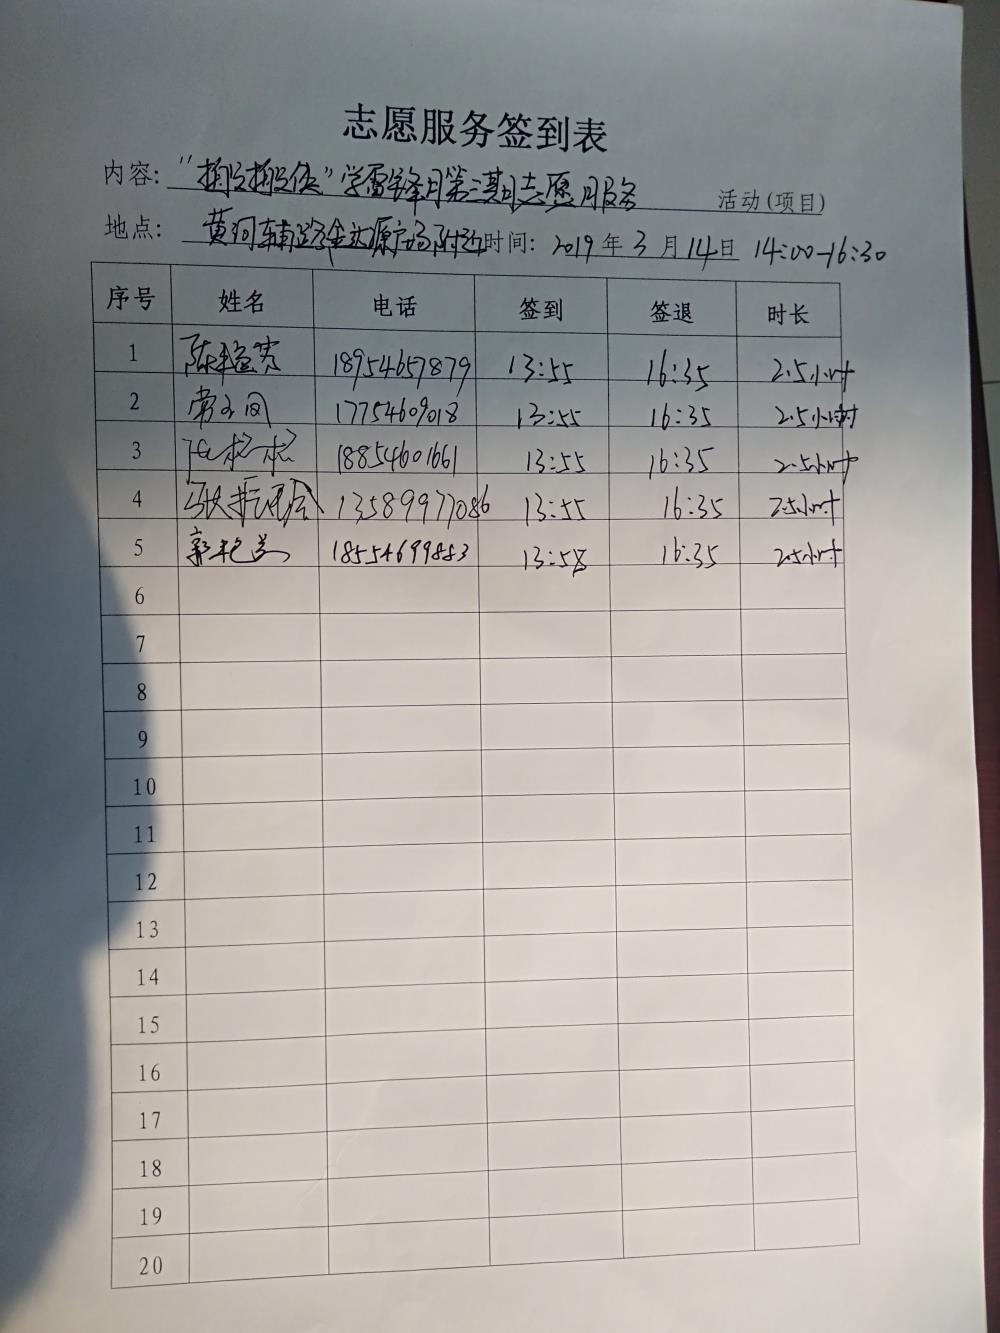 志愿服务签到表
内容: 学雷锋月第三期志愿服务 活动(项目)
地点: 黄河辅路金达源广场附近 时间: 2019年3月14日 14:00-16:30
序号 姓名 电话 签到 签退 时长
1 18954657879 13:55 16:35 2.5小时
2 17754609018 13:55 16:35 2.5小时
3 18854601661 13:55 16:35 2.5小时
4 13589977086 13:55 16:35 2.5小时
5 郭艳兰 18554699883 13:58 16:35 2.5小时
6
7
8
9
10
11
12
13
14
15
16
17
18
19
20